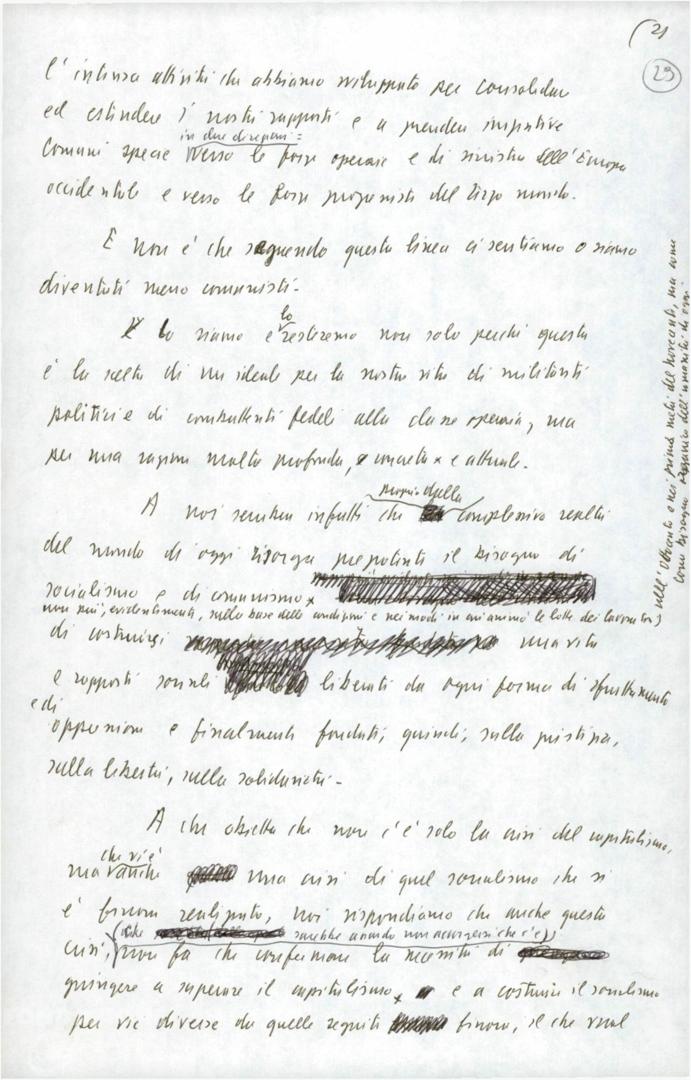 (21
29
l'intensa attività che abbiamo sviluppato per consolidare
ed estendere i nostri rapporti e a prendere iniziative
in due direzioni:
comuni specie verso le forze operaie e di sinistra dell'Europa
occidentale e verso le forze progressiste del terzo mondo.
E non è che seguendo questa linea ci sentiamo o siamo
diventati meno comunisti.
lo
Lo siamo e resteremo non solo perché questa
è la scelta di un ideale per la nostra vita di militanti
politici e di combattenti fedeli alla classe operaia, ma
per una ragione molto profonda, concreta e attuale.
proprio dalla
A noi sembra infatti che complessiva realtà
del mondo di oggi risorga prepotente il bisogno di
socialismo e di comunismo
non più, evidentemente, sulla base delle condizioni e nei modi in cui le lotte dei lavoratori
nell'Ottocento e nei prima metà del novecento, ma come
come bisogno dell'umanità di oggi
di costruirsi una vita
e rapporti sociali liberati da ogni forma di sfruttamento
e di
oppressione e finalmente fondati, quindi, sulla giustizia,
sulla libertà, sulla solidarietà.
A chi obietta che non c'è solo la crisi del capitalismo,
che vi è
ma anche una crisi di quel socialismo che si
è finora realizzato, noi rispondiamo che anche questa
(che sarebbe assurdo non accorgersi che c'è)
crisi, non fa che confermare la necessità di
giungere a superare il capitalismo e a costruire il socialismo
per vie diverse da quelle seguite finora, il che vuol